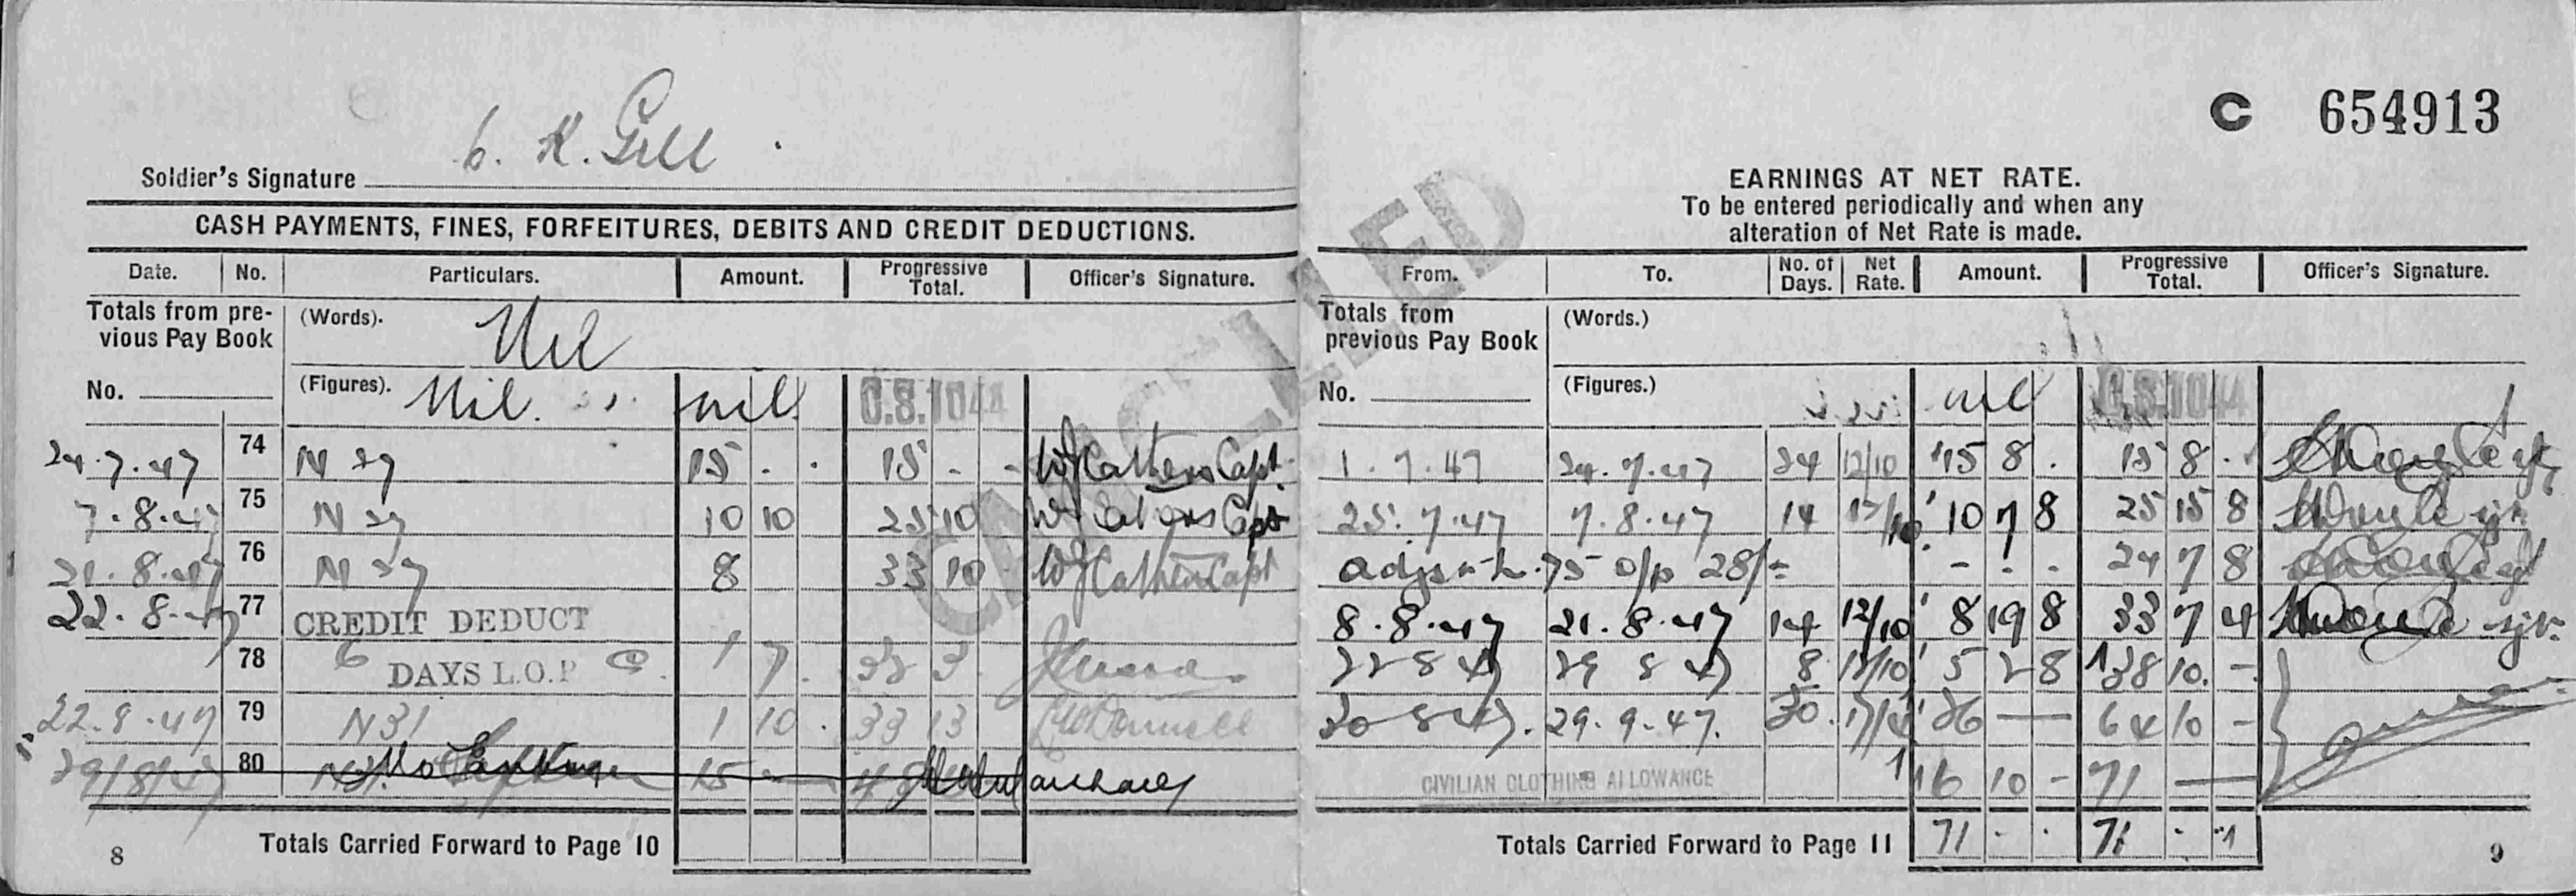 C. K. Gill
Soldier's Signature
CASH PAYMENTS, FINES, FORFEITURES, DEBITS AND CREDIT DEDUCTIONS.
Date. No. Particulars. Amount. Progressive Total. Officer's Signature.
Totals from previous Pay Book (Words). Nil
No. (Figures). Nil. nil C.S.1044
24.7.47 74 N 27 15 - - 15 - - Capt.
7.8.47 75 N 27 10 10 25 10 Capt
21.8.47 76 N 27 8 33 10 Capt
22.8.47 77 CREDIT DEDUCT
78 6 DAYS L.O.P @ 1 7 .
22.8.47 79 N31 1 10 . 33 13 McDonnell
29/8/47 80 15 -
8 Totals Carried Forward to Page 10
CANCELLED
C 654913
EARNINGS AT NET RATE.
To be entered periodically and when any
alteration of Net Rate is made.
From. To. No. of Days. Net Rate. Amount. Progressive Total. Officer's Signature.
Totals from previous Pay Book (Words.)
No. (Figures.) nil C.S.1044
1.7.47 24.7.47 24 12/10 15 8 . 15 8 .
25.7.47 7.8.47 14 12/10 10 7 8 25 15 8
75 o/p 28/= - - - 24 7 8
8.8.47 21.8.47 14 12/10 8 19 8 33 7 4
22 8 47 29 8 47 8 12/10 5 2 8 38 10 -
30 8 47. 29.9.47. 30. 17/4 26 — 64 10 -
CIVILIAN CLOTHING ALLOWANCE 6 10 - 71 —
Totals Carried Forward to Page 11 71 - - 71 - -
9